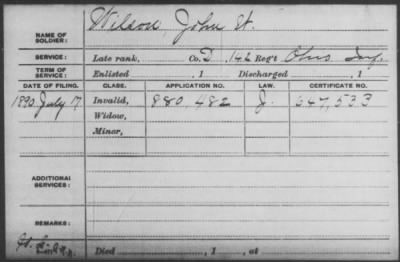 NAME OF SOLDIER: Wilson, John
SERVICE: Late rank, Co. D, 142 Reg't Ohio Inf.
TERM OF SERVICE: Enlisted , 1 Discharged , 1
DATE OF FILING. CLASS. APPLICATION NO. LAW. CERTIFICATE NO.
1890 July 17 Invalid, 880,482 J. 647,533
Widow,
Minor,
ADDITIONAL SERVICES:
REMARKS:
Died , 1 , at